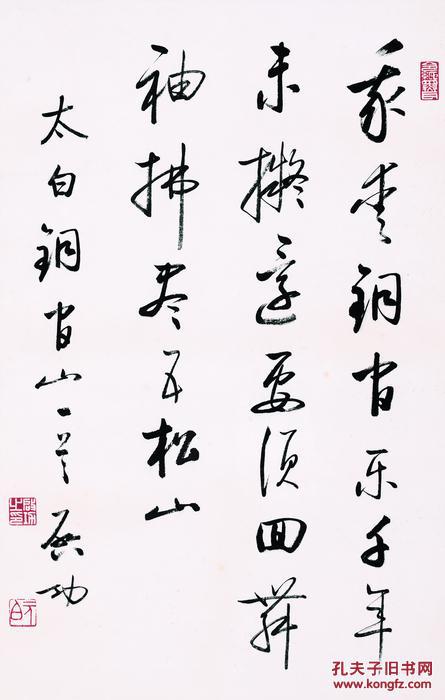 我爱铜官乐千年
未拟还要须回舞
袖拂尽五松山
太白铜官山一首 启功
孔夫子旧书网
www.kongfz.com